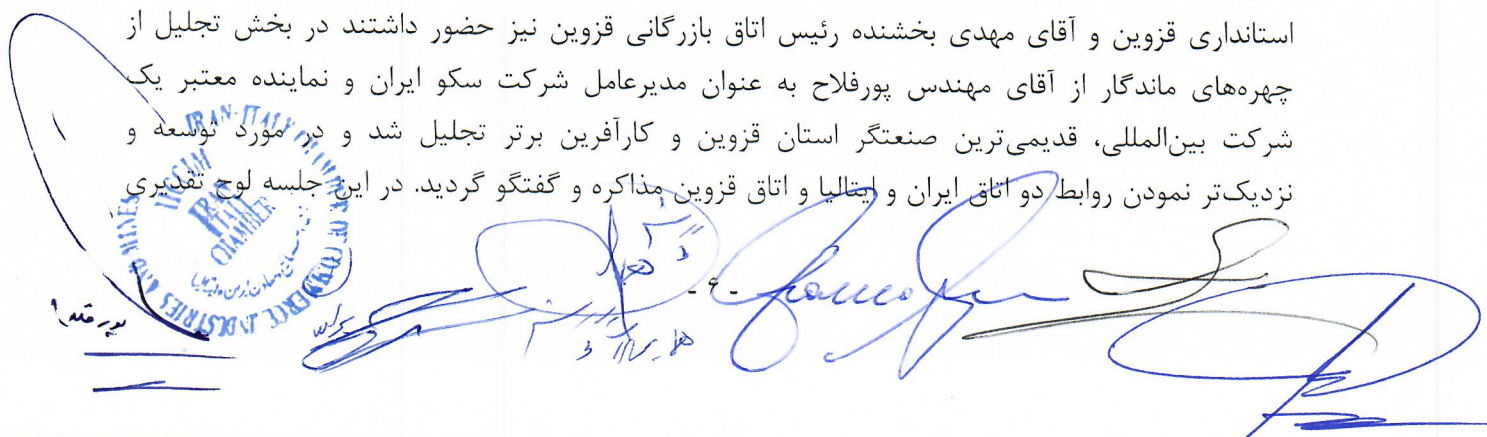 استانداری قزوین و آقای مهدی بخشنده رئیس اتاق بازرگانی قزوین نیز حضور داشتند در بخش تجلیل از
چهره‌های ماندگار از آقای مهندس پورفلاح به عنوان مدیرعامل شرکت سکو ایران و نماینده معتبر یک
شرکت بین‌المللی، قدیمی‌ترین صنعتگر استان قزوین و کارآفرین برتر تجلیل شد و در مورد توسعه و
نزدیک‌تر نمودن روابط دو اتاق ایران و ایتالیا و اتاق قزوین مذاکره و گفتگو گردید. در این جلسه لوح تقدیری
IRAN-ITALY CHAMBER OF COMMERCE, INDUSTRIES AND MINES
IRAN
ITALY
CHAMBER
- ۶ -